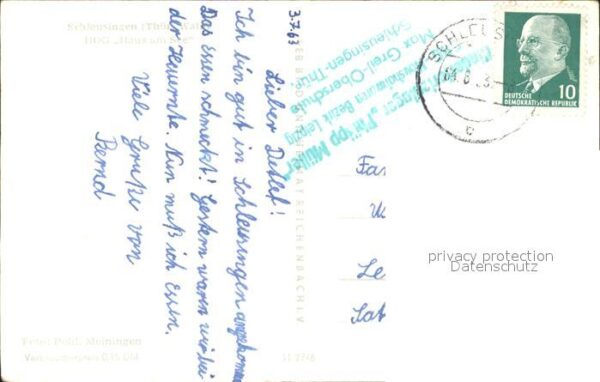 Schleusingen (Thür. Wald)
HOG „Haus am See"
3.7.63
Lieber Detlef!
Ich bin gut in Schleusingen angekommen
Das Essen schmeckt! Gestern waren wir bei
der Heuernte. Nun muß ich Essen.
Viele Grüße von
Bernd
Foto: Pohl, Meiningen
"Philipp Müller"
Bezirk Leipzig
Max Greil-Oberschule
Schleusingen-Thür.
SCHLEUS
DEUTSCHE
DEMOKRATISCHE REPUBLIK
10
Fa
W
Le
privacy protection
Datenschutz